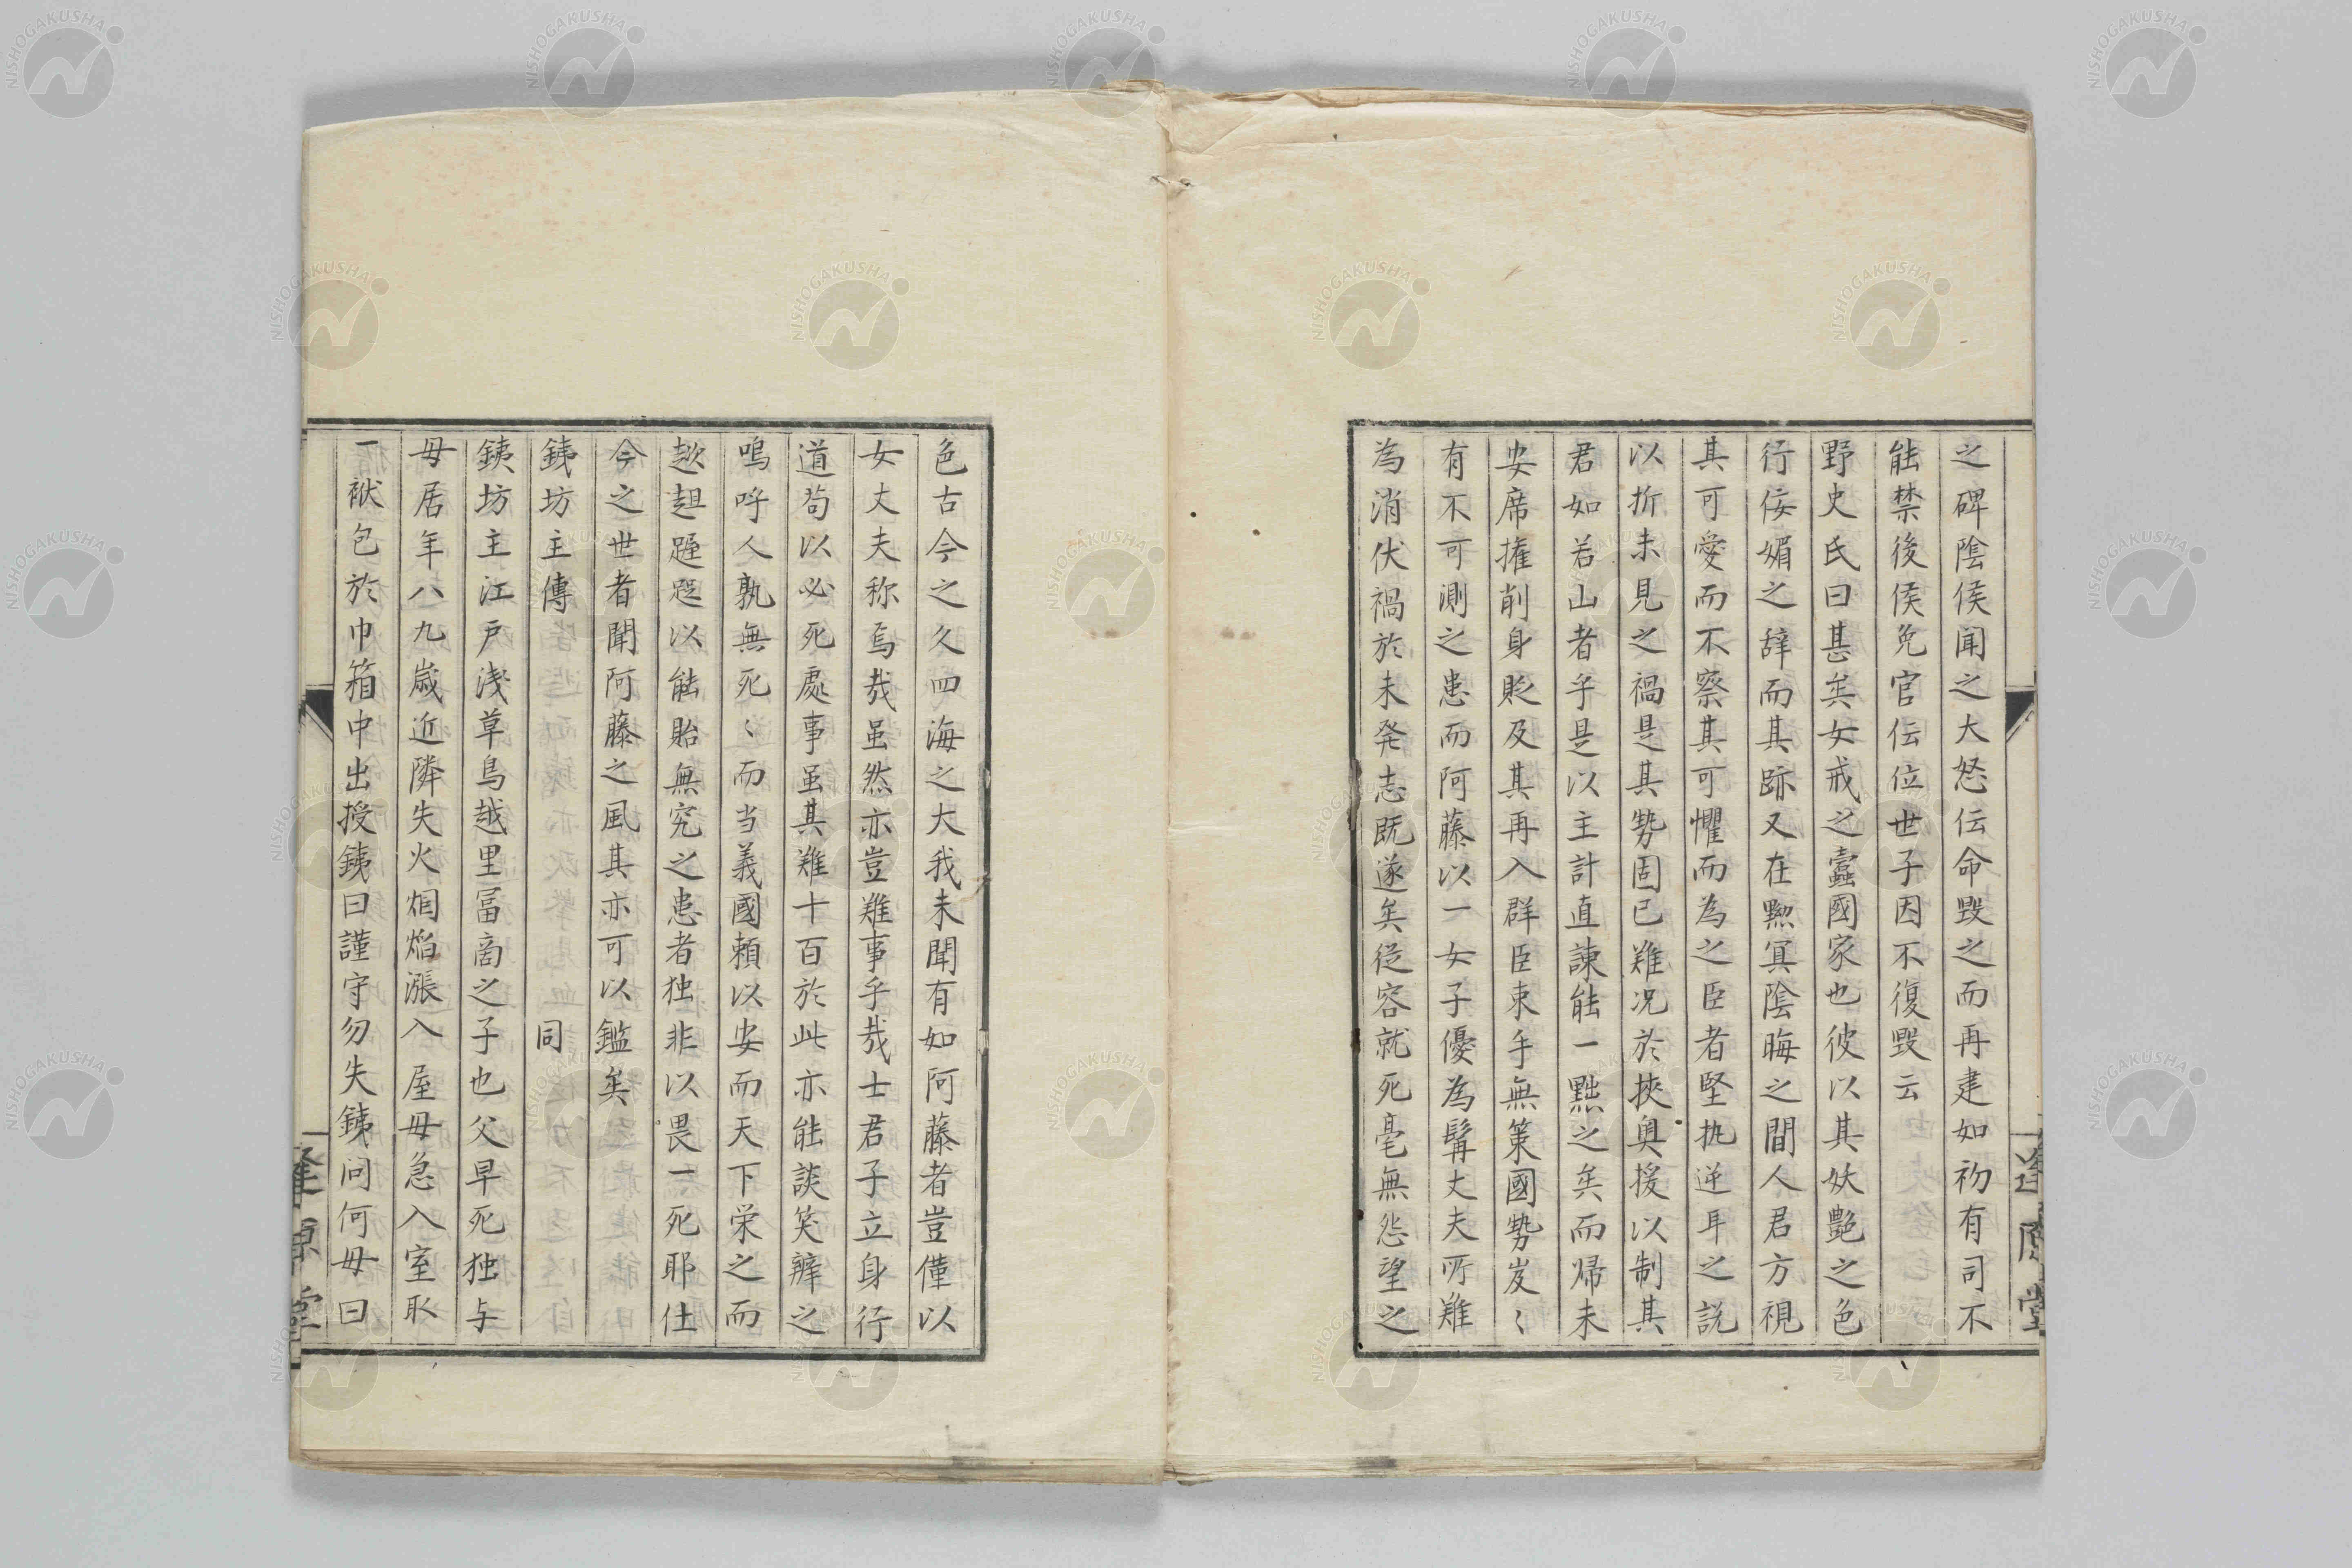 之碑陰侯闻之大怒伝命毀之而再建如初有司不
能禁後侯免官伝位世子因不復毀云
野史氏曰甚矣女戒之蠧國家也彼以其妖艶之色
行佞媚之辞而其跡又在黙冥陰晦之間人君方視
其可愛而不察其可懼而為之臣者堅执逆耳之説
以折未見之禍是其勢固已難况於挾奥援以制其
君如若山者乎是以主計直諫能一黜之矣而帰未
安席搉削身貶及其再入群臣束手無策國勢岌〻
有不可測之患而阿藤以一女子優為髯丈夫所難
為消伏禍於未発志既遂矣従容就死毫無怨望之
色古今之久四海之大我未聞有如阿藤者豈僅以
女丈夫称焉哉虽然亦豈難事乎哉士君子立身行
道苟以必死處事虽其難十百於此亦能談笑辨之
嗚呼人孰無死〻而当義國頼以安而天下栄之而
趑趄趦趄以能貽無究之患者独非以畏一死耶仕
今之世者聞阿藤之風其亦可以鑑矣
銕坊主傳 同
銕坊主江戸浅草鳥越里冨啇之子也父早死独与
母居年八九歳近隣失火烟焔漲入屋母急入室取
一袱包於巾箱中出授銕曰謹守勿失銕问何母曰
逢原堂
逢原堂
NISHOGAKUSHA